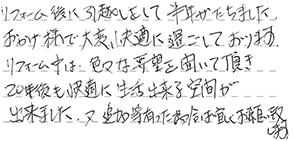 リフォーム後に引越しをして半年がたちました
おかげ様で大変快適に過ごしております。
リフォーム中は、色々な要望を聞いて頂き
20年後も快適に生活出来る空間が
出来ました。又 追加等有った場合は宜しくお願い致
します。